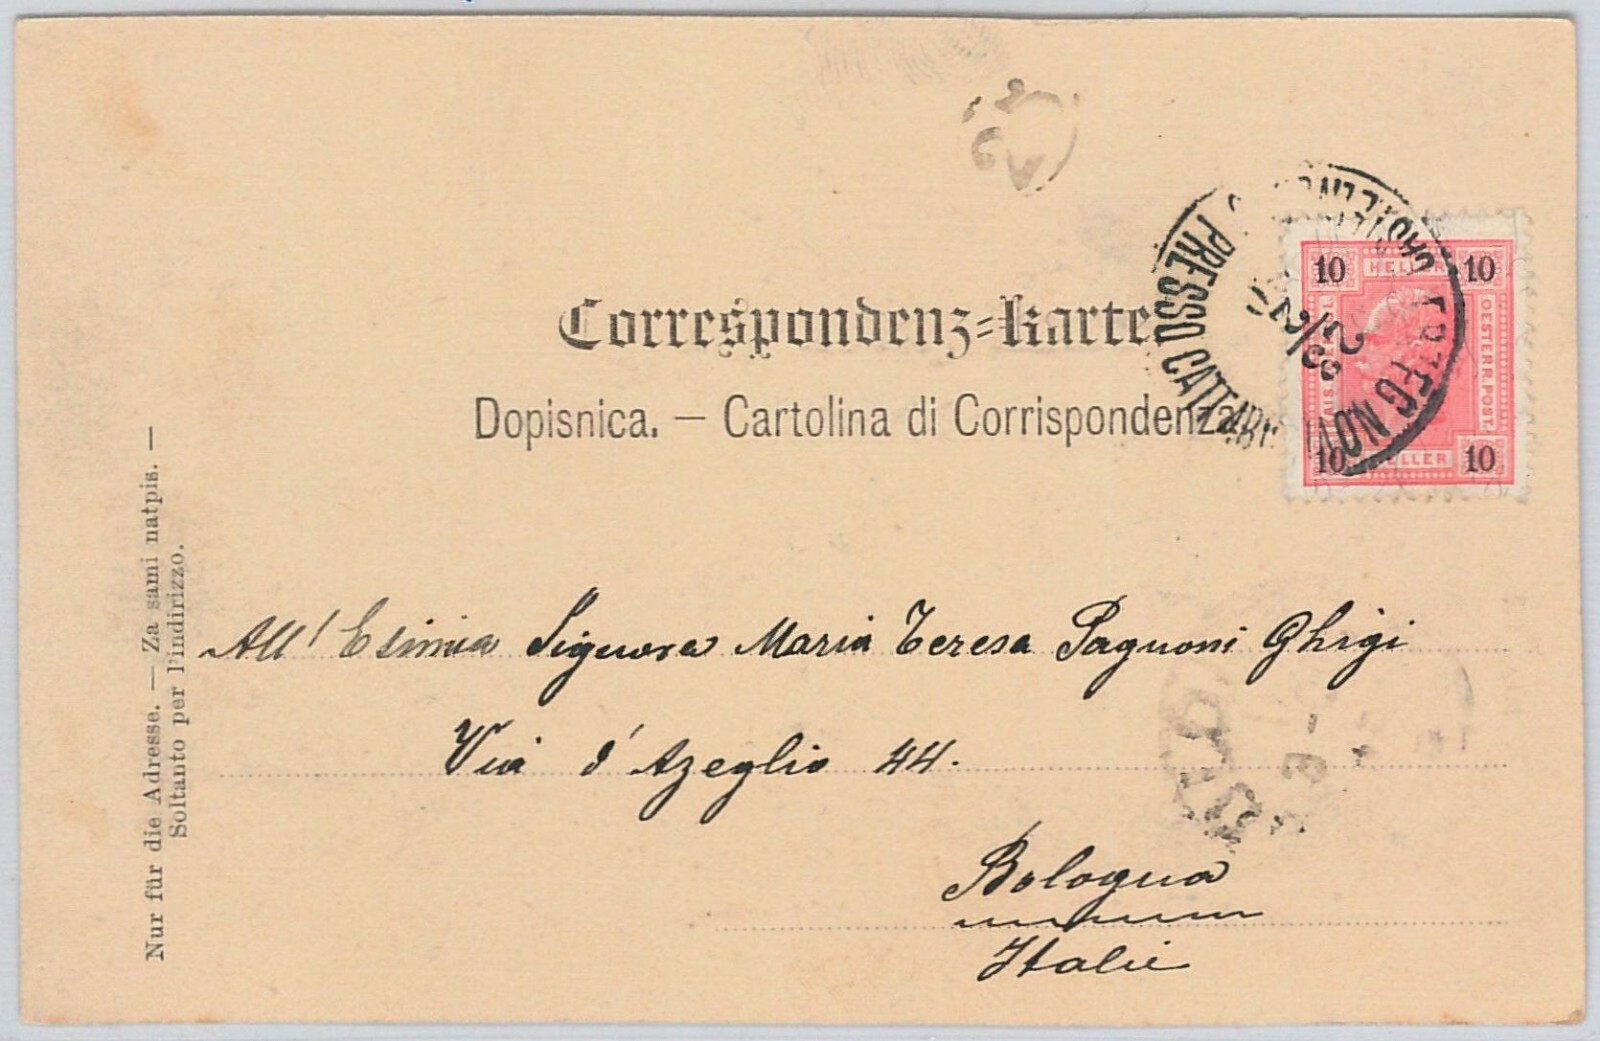 Correspondenz-Karte
Dopisnica. — Cartolina di Corrispondenza.
10 HELLER 10
OESTERR.POST
10 HELLER 10
PRESSO CATTARO
23/6
Nur für die Adresse. — Za sami natpis. —
Soltanto per l'indirizzo.
All' Esimia Signora Maria Teresa Pagnoni Ghigi
Via d'Azeglio 44.
Bologna
Italie